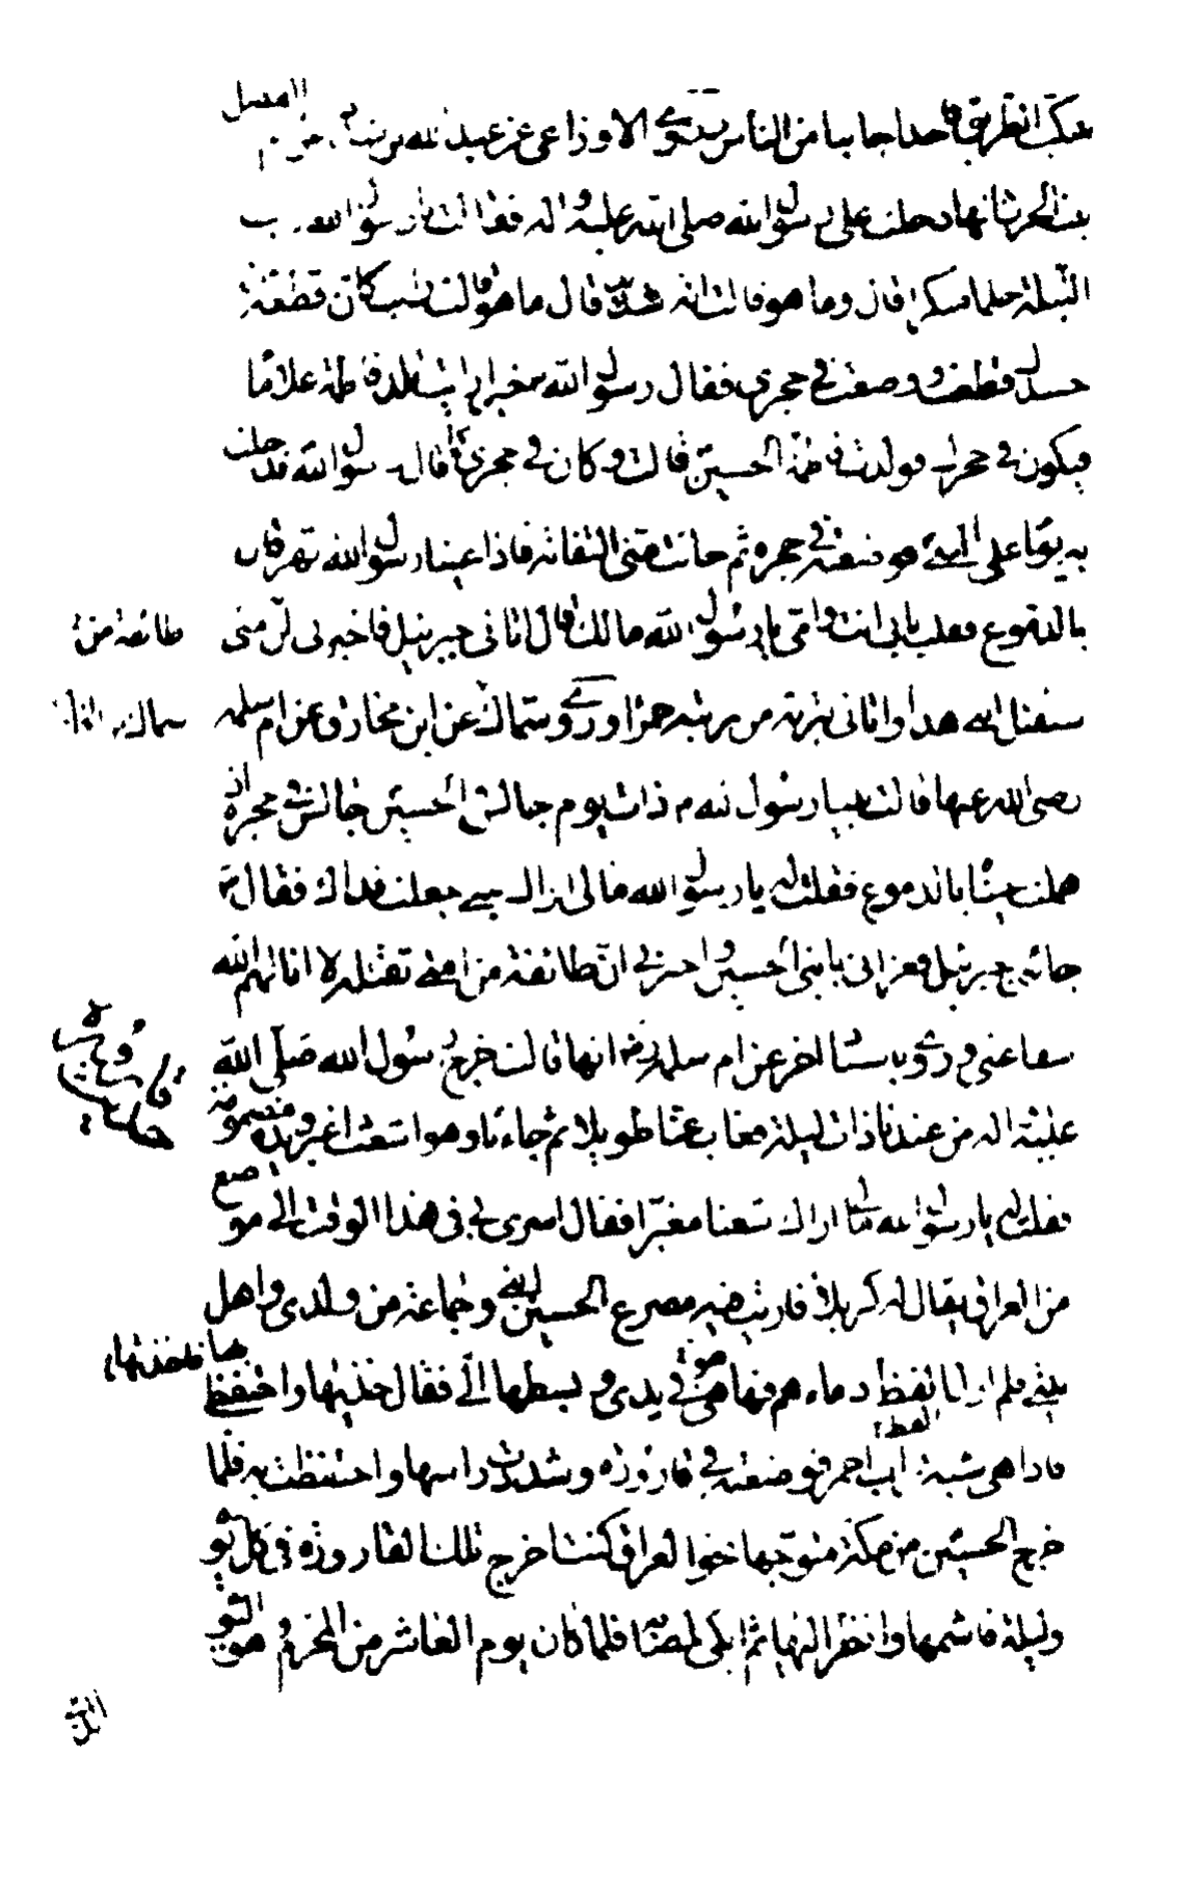 فتنكب الطريق فأخذ جانبا من الناس روى الاوزاعى عن عبد الله بن عن ام الفضل
بنت الحرث انها دخلت على رسول الله صلى الله عليه واله فقالت يا رسول الله رايت
الليلة حلما منكرا قال وما هو قالت انه شديد قال ما هو قالت رايت كان قطعة من
جسدك قطعت ووضعت في حجري فقال رسول الله خيرا رايت تلد فاطمة غلاما
فيكون في حجرك فولدت فاطمة الحسين قالت وكان في حجري كما قال رسول الله فدخلت
به يوما على النبي فوضعته في حجره ثم حانت منى التفاتة فاذا عينا رسول الله تهرقان
بالدموع فقلت بابى انت وامى يا رسول الله مالك قال اتانى جبرئيل فاخبرنى ان امتى طائفة من
ستقتل ابنى هذا واتانى بتربة من تربته حمرا وروى سماك عن ابن مخارق عن ام سلمه
رضى الله عنها قالت بينا رسول الله ذات يوم جالس والحسين جالس في حجره اذ
هملت عيناه بالدموع فقلت له يا رسول الله مالى اراك تبكى جعلت فداك فقال
جائنى جبرئيل فعزانى بابنى الحسين واخبرنى ان طائفة من امتى تقتله لا انالهم الله
شفاعتى وروى باسناد اخر عن ام سلمه انها قالت خرج رسول الله صلى الله
عليه واله من عندنا ذات ليلة فغاب عنا طويلا ثم جاءنا وهو اشعث اغبر ويده مضمومة
فقلت له يا رسول الله مالى اراك شعثا مغبرا فقال اسرى بى فى هذا الوقت الى موضع
من العراق يقال له كربلا فاريت فيه مصرع الحسين ابنى وجماعة من ولدى واهل
بيتى فلم ازل القط دماءهم فها هى في يدى وبسطها الى فقال خذيها واحتفظى بها فاخذتها
فاذا هى شبه تراب احمر فوضعته في قارورة وشددت راسها واحتفظت به فلما
خرج الحسين من مكة متوجها نحو العراق كنت اخرج تلك القارورة في كل يوم
وليلة فاشمها وانظر اليها ثم ابكى لمصابه فلما كان يوم العاشر من المحرم وهو اليوم
الذى